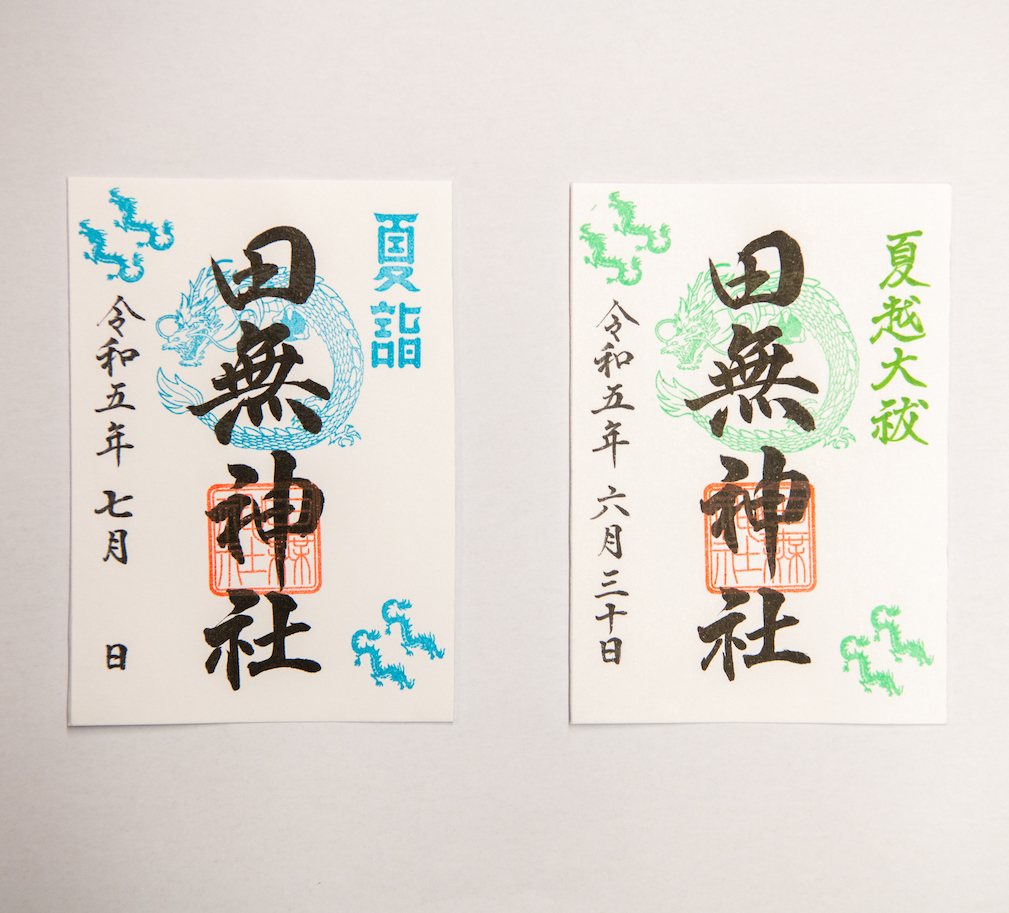 夏詣
田無神社
令和五年 七月 日
夏越大祓
田無神社
令和五年 六月三十日